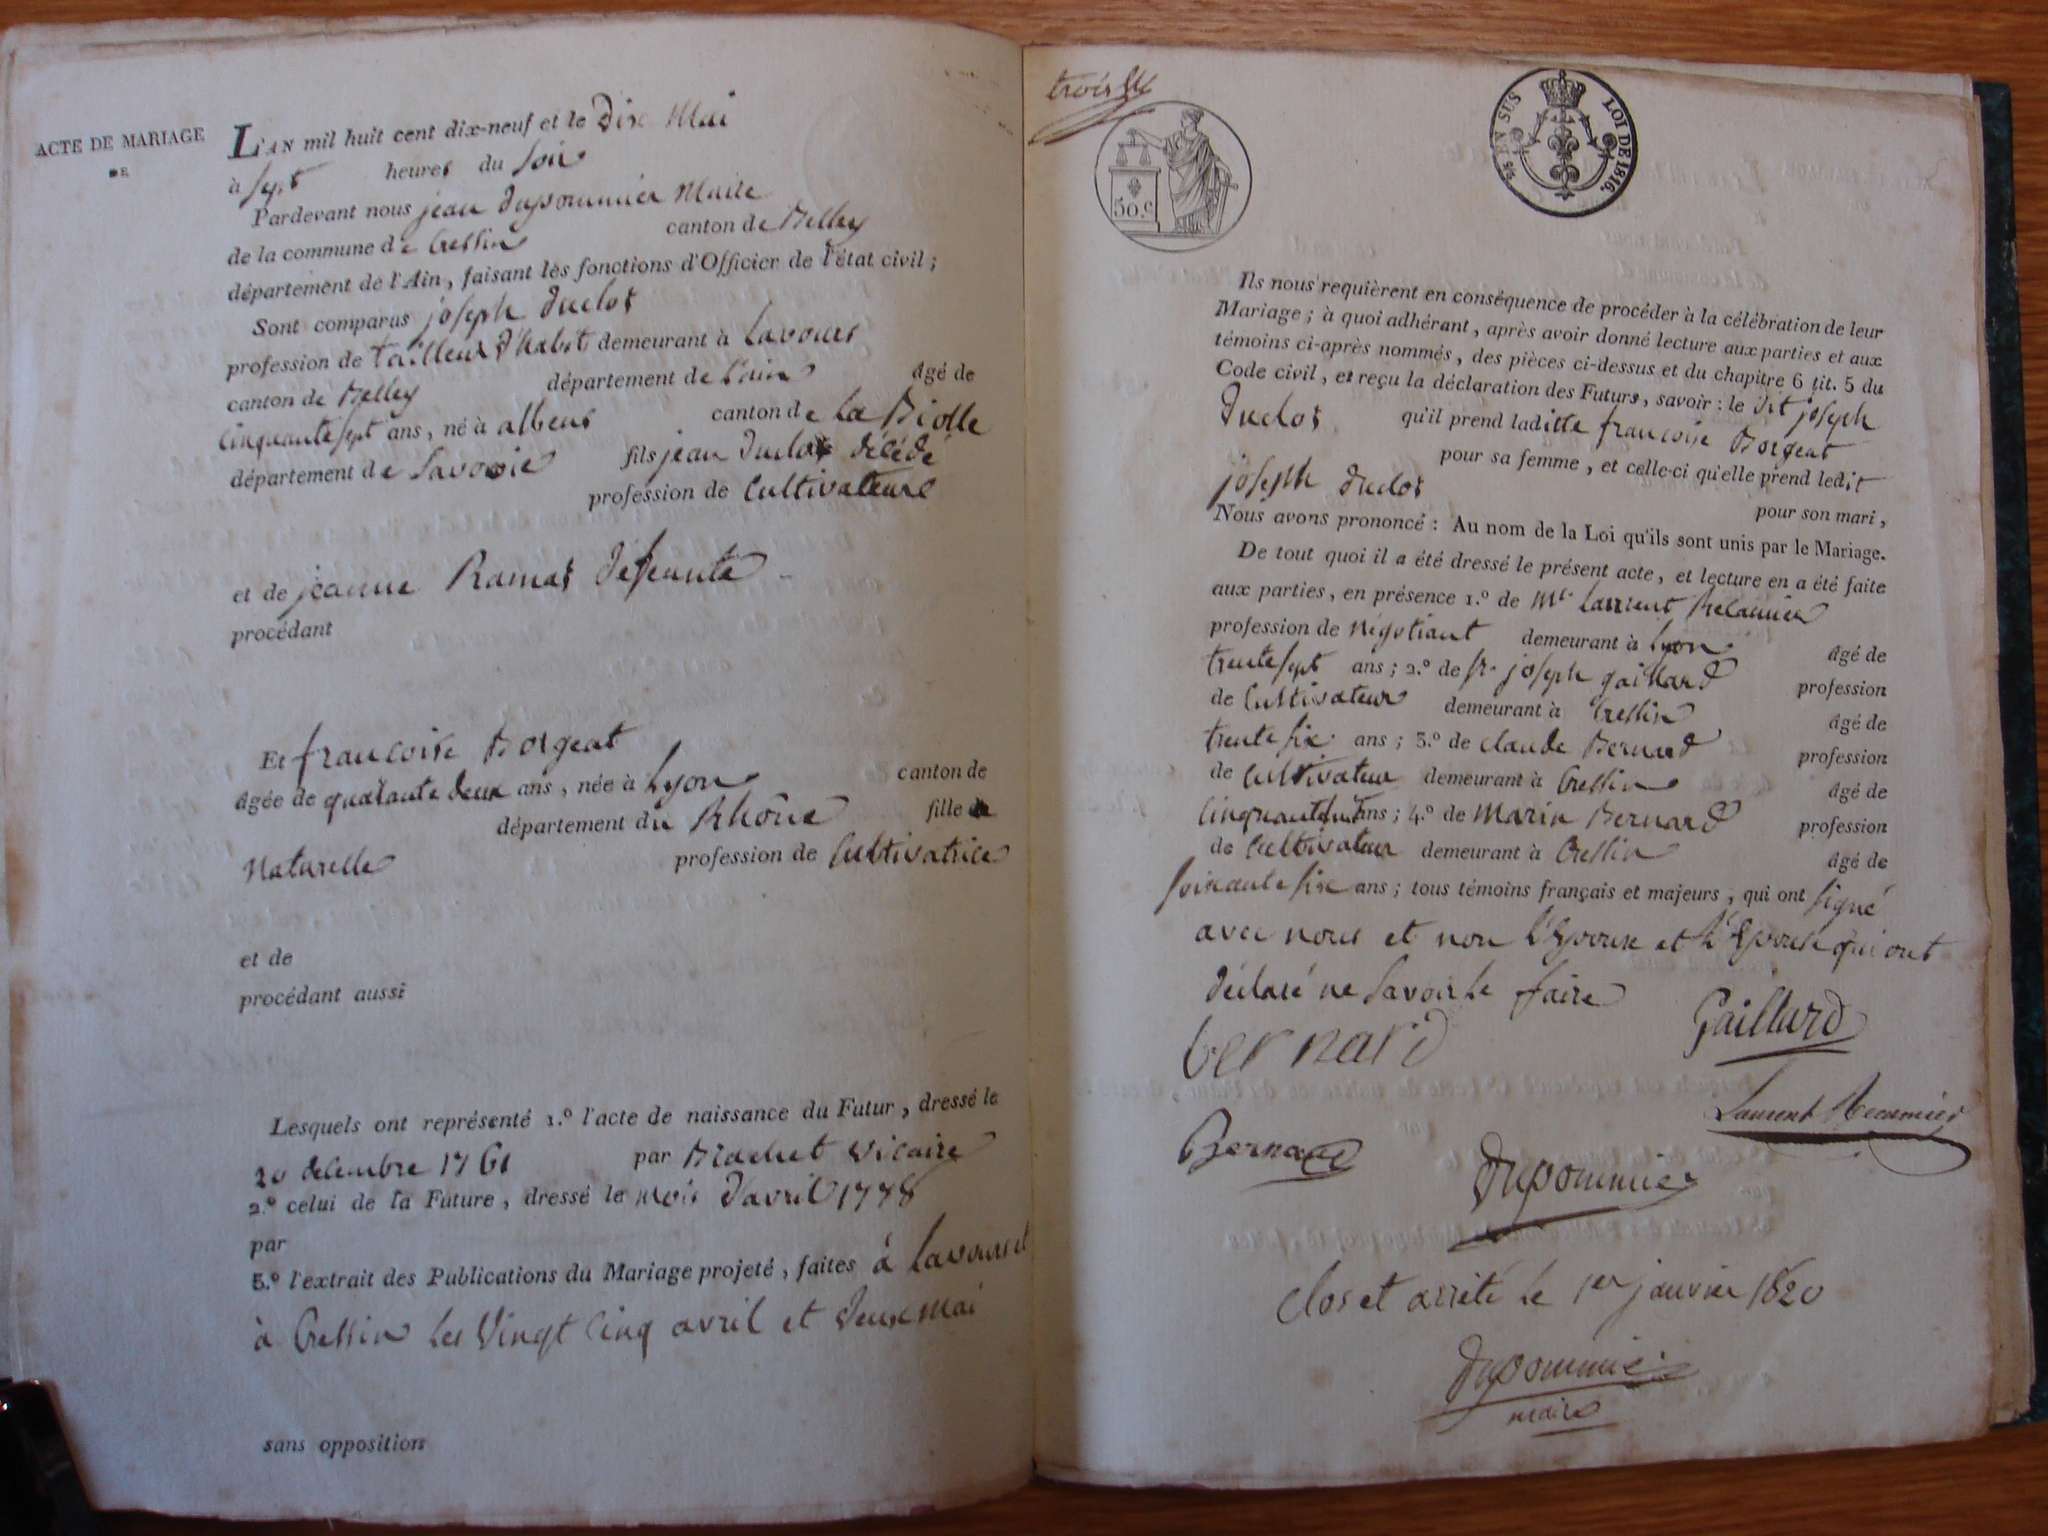 ACTE DE MARIAGE
DE
L'AN mil huit cent dix-neuf et le Dix Mai
à sept heures du soir
Pardevant nous jean Dupommier Maire
de la commune de Cressin canton de Belley
département de l'Ain, faisant les fonctions d'Officier de l'état civil ;
Sont comparus joseph Duclos
profession de tailleur d'habit demeurant à Lavours
canton de Belley département de l'ain âgé de
cinquante sept ans, né à albens canton de La Biolle
département de Savoie fils jean Duclos décédé
profession de Cultivateur
et de jeanne Ramas
procédant
Et francoise Borgeat
âgée de quarante deux ans, née à Lyon canton de
département du Rhône fille
Naturelle profession de Cultivatrice
et de
procédant aussi
Lesquels ont représenté 1.º l'acte de naissance du Futur, dressé le
20 décembre 1761 par Brachet vicaire
2.º celui de la Future, dressé le mois d'avril 1778
par
3.º l'extrait des Publications du Mariage projeté, faites à Lavours et
à Cressin les Vingt cinq avril et Deux mai
sans opposition
trois
50.c
EN SUS
LOI DE 1816.
Ils nous requièrent en conséquence de procéder à la célébration de leur
Mariage ; à quoi adhérant, après avoir donné lecture aux parties et aux
témoins ci-après nommés, des pièces ci-dessus et du chapitre 6 tit. 5 du
Code civil, et reçu la déclaration des Futurs, savoir : le dit joseph
Duclos qu'il prend laditte francoise Borgeat
pour sa femme, et celle-ci qu'elle prend ledit
joseph Duclos
pour son mari,
Nous avons prononcé : Au nom de la Loi qu'ils sont unis par le Mariage.
De tout quoi il a été dressé le présent acte, et lecture en a été faite
aux parties, en présence 1.º de Mr Laurent Récamier
profession de Négotiant demeurant à Lyon âgé de
trente sept ans ; 2.º de Sr joseph gaillard profession
de Cultivateur demeurant à Cressin âgé de
trente six ans ; 3.º de claude Bernard profession
de Cultivateur demeurant à Cressin âgé de
ans ; 4.º de Marin Bernard profession
de Cultivateur demeurant à Cressin âgé de
soixante six ans ; tous témoins français et majeurs, qui ont signé
avec nous et non l'Epoux et l'Epouse qui ont
déclaré ne savoir le faire
bernard
Gaillard
Laurent Recamier
Bernard
Dupommier
clos et arrêté le 1er janvier 1820
Dupommier
maire